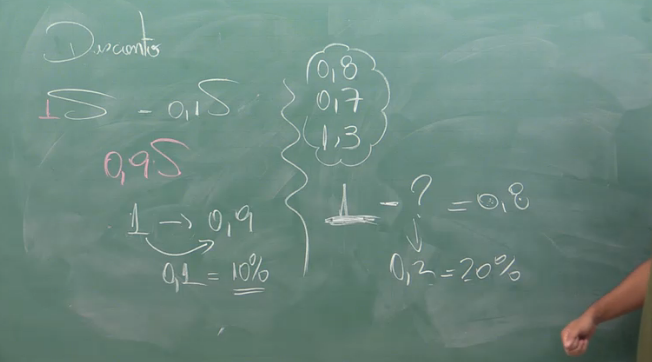 Desconto
1S - 0,1S
0,9S
1 → 0,9
0,1 = 10%
0,8
0,7
1,3
1 - ? = 0,8
0,2 = 20%